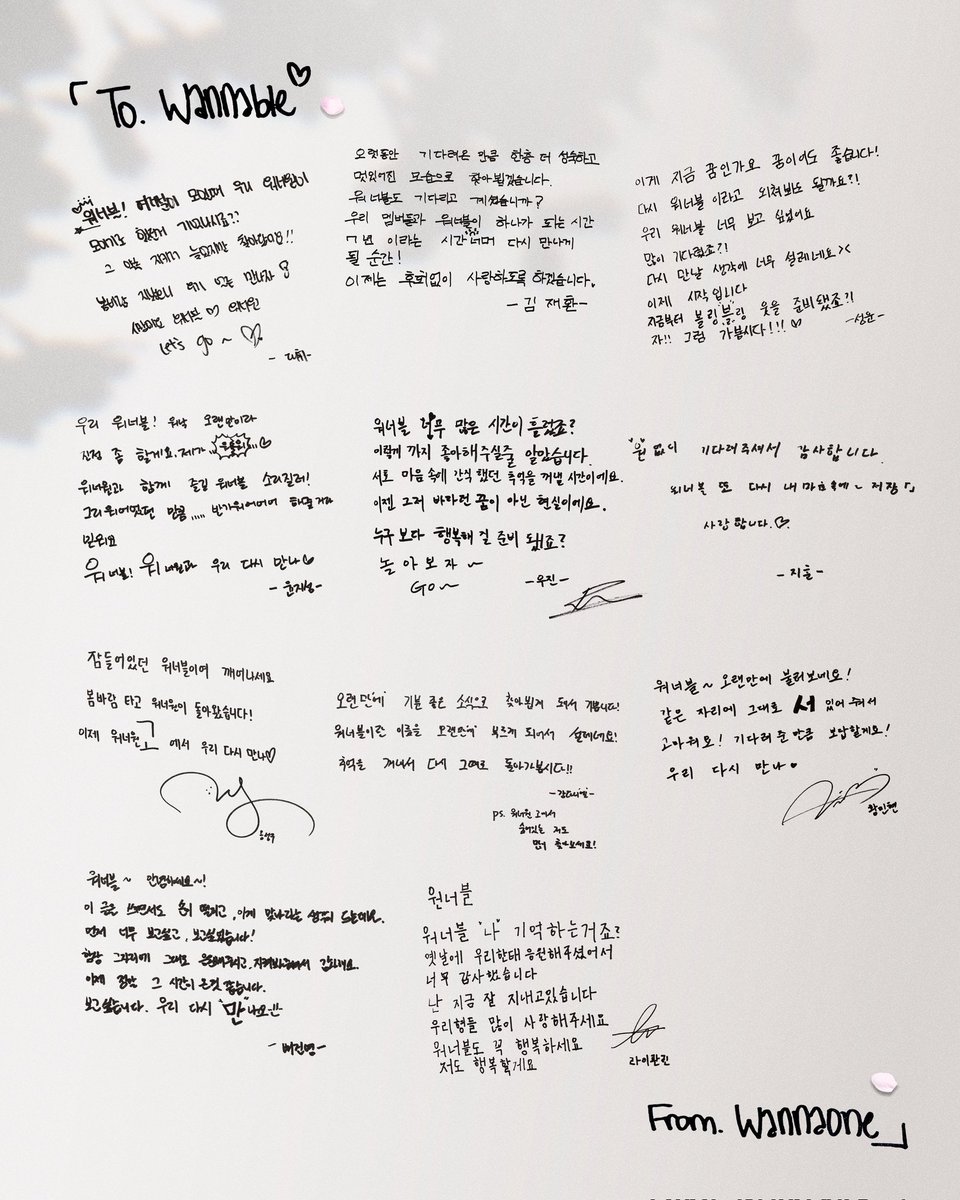 「To. Wannable♡
워너블! 여러분이 모이면 우리 워너원이
모이기도 했던거 기억나시죠??
Let's go ~ ♡
- 대휘-
오랫동안 기다려온 만큼 한층 더 성숙하고
멋있어진 모습으로 찾아뵙겠습니다.
워너블도 기다리고 계셨습니까?
우리 멤버들과 워너블이 하나가 되는 시간
7년 이라는 시간 너머 다시 만나게
될 순간!
이제는 후회없이 사랑하도록 하겠습니다.
- 김재환-
이게 지금 꿈인가요 꿈이어도 좋습니다!
다시 워너블이라고 외쳐봐도 될까요?!
우리 워너블 너무 보고 싶었어요
많이 기다렸죠?!
다시 만날 생각에 너무 설레네요><
이제 시작입니다
지금부터 블링"블"링 웃을 준비됐죠?!
자!! 그럼 가봅시다!!! ♡
-성운-
우리 워너블! 워낙 오랜만이라
진정 좀 할게요. 제가
워너원과 함께 즐길 워너블 소리질러!
그리워어했던 만큼,,,,, 반가워어어어 하실거라
믿워요
워너블! 워너원과 우리 다시 만나♡
- 윤지성-
워너블 너무 많은 시간이 흘렀죠?
이렇게 까지 좋아해주실줄 알았습니다.
서로 마음 속에 간직했던 추억을 꺼낼 시간이에요.
이젠 그리 바라던 꿈이 아닌 현실이에요.
누구보다 행복해 질 준비 됐죠?
놀아보자 ~
Go~ -우진-
"원" 없이 기다려주셔서 감사합니다.
워너블 또 다시 내 마음속에~ 저장「」
사랑합니다.♡
- 지훈 -
잠들어있던 워너블이여 깨어나세요
봄바람 타고 워너원이 돌아왔습니다!
이제 워너원고 에서 우리 다시 만나♡
옹성우
오랜만에 기분 좋은 소식으로 찾아뵙게 되서 기쁩니다!
워너블이란 이름을 오랜만에 부르게 되어서 설레네요!
추억을 꺼내서 다시 그때로 돌아가봅시다!!
-강다니엘-
ps. 워너원 고에서
숨어있는 저도
먼저 찾아보세요!
워너블~ 오랜만에 불러보네요!
같은 자리에 그대로 서 있어 줘서
고마워요! 기다려준 만큼 보답할게요!
우리 다시 만나♥
황민현
워너블~ 안녕하세요~!
이 글을 쓰면서도 손이 떨리고, 이게 맞나라는 생각이 드는데요.
먼저 너무 보고싶고, 보고싶었습니다!
항상 그자리에 그대로 응원해주시고, 지켜봐주셔서 감사해요.
이제 정말 그 시간이 온것 같습니다.
보고싶습니다. 우리 다시 "만"나요!!
- 배진영-
원너블
워너블 "나" 기억하는거죠?
옛날에 우리한대 응원해주셨어서
너무 감사했습니다
난 지금 잘 지내고있습니다
우리형들 많이 사랑해주세요
워너블도 꼭 행복하세요
저도 행복할게요
라이관린
From. Wannaone」